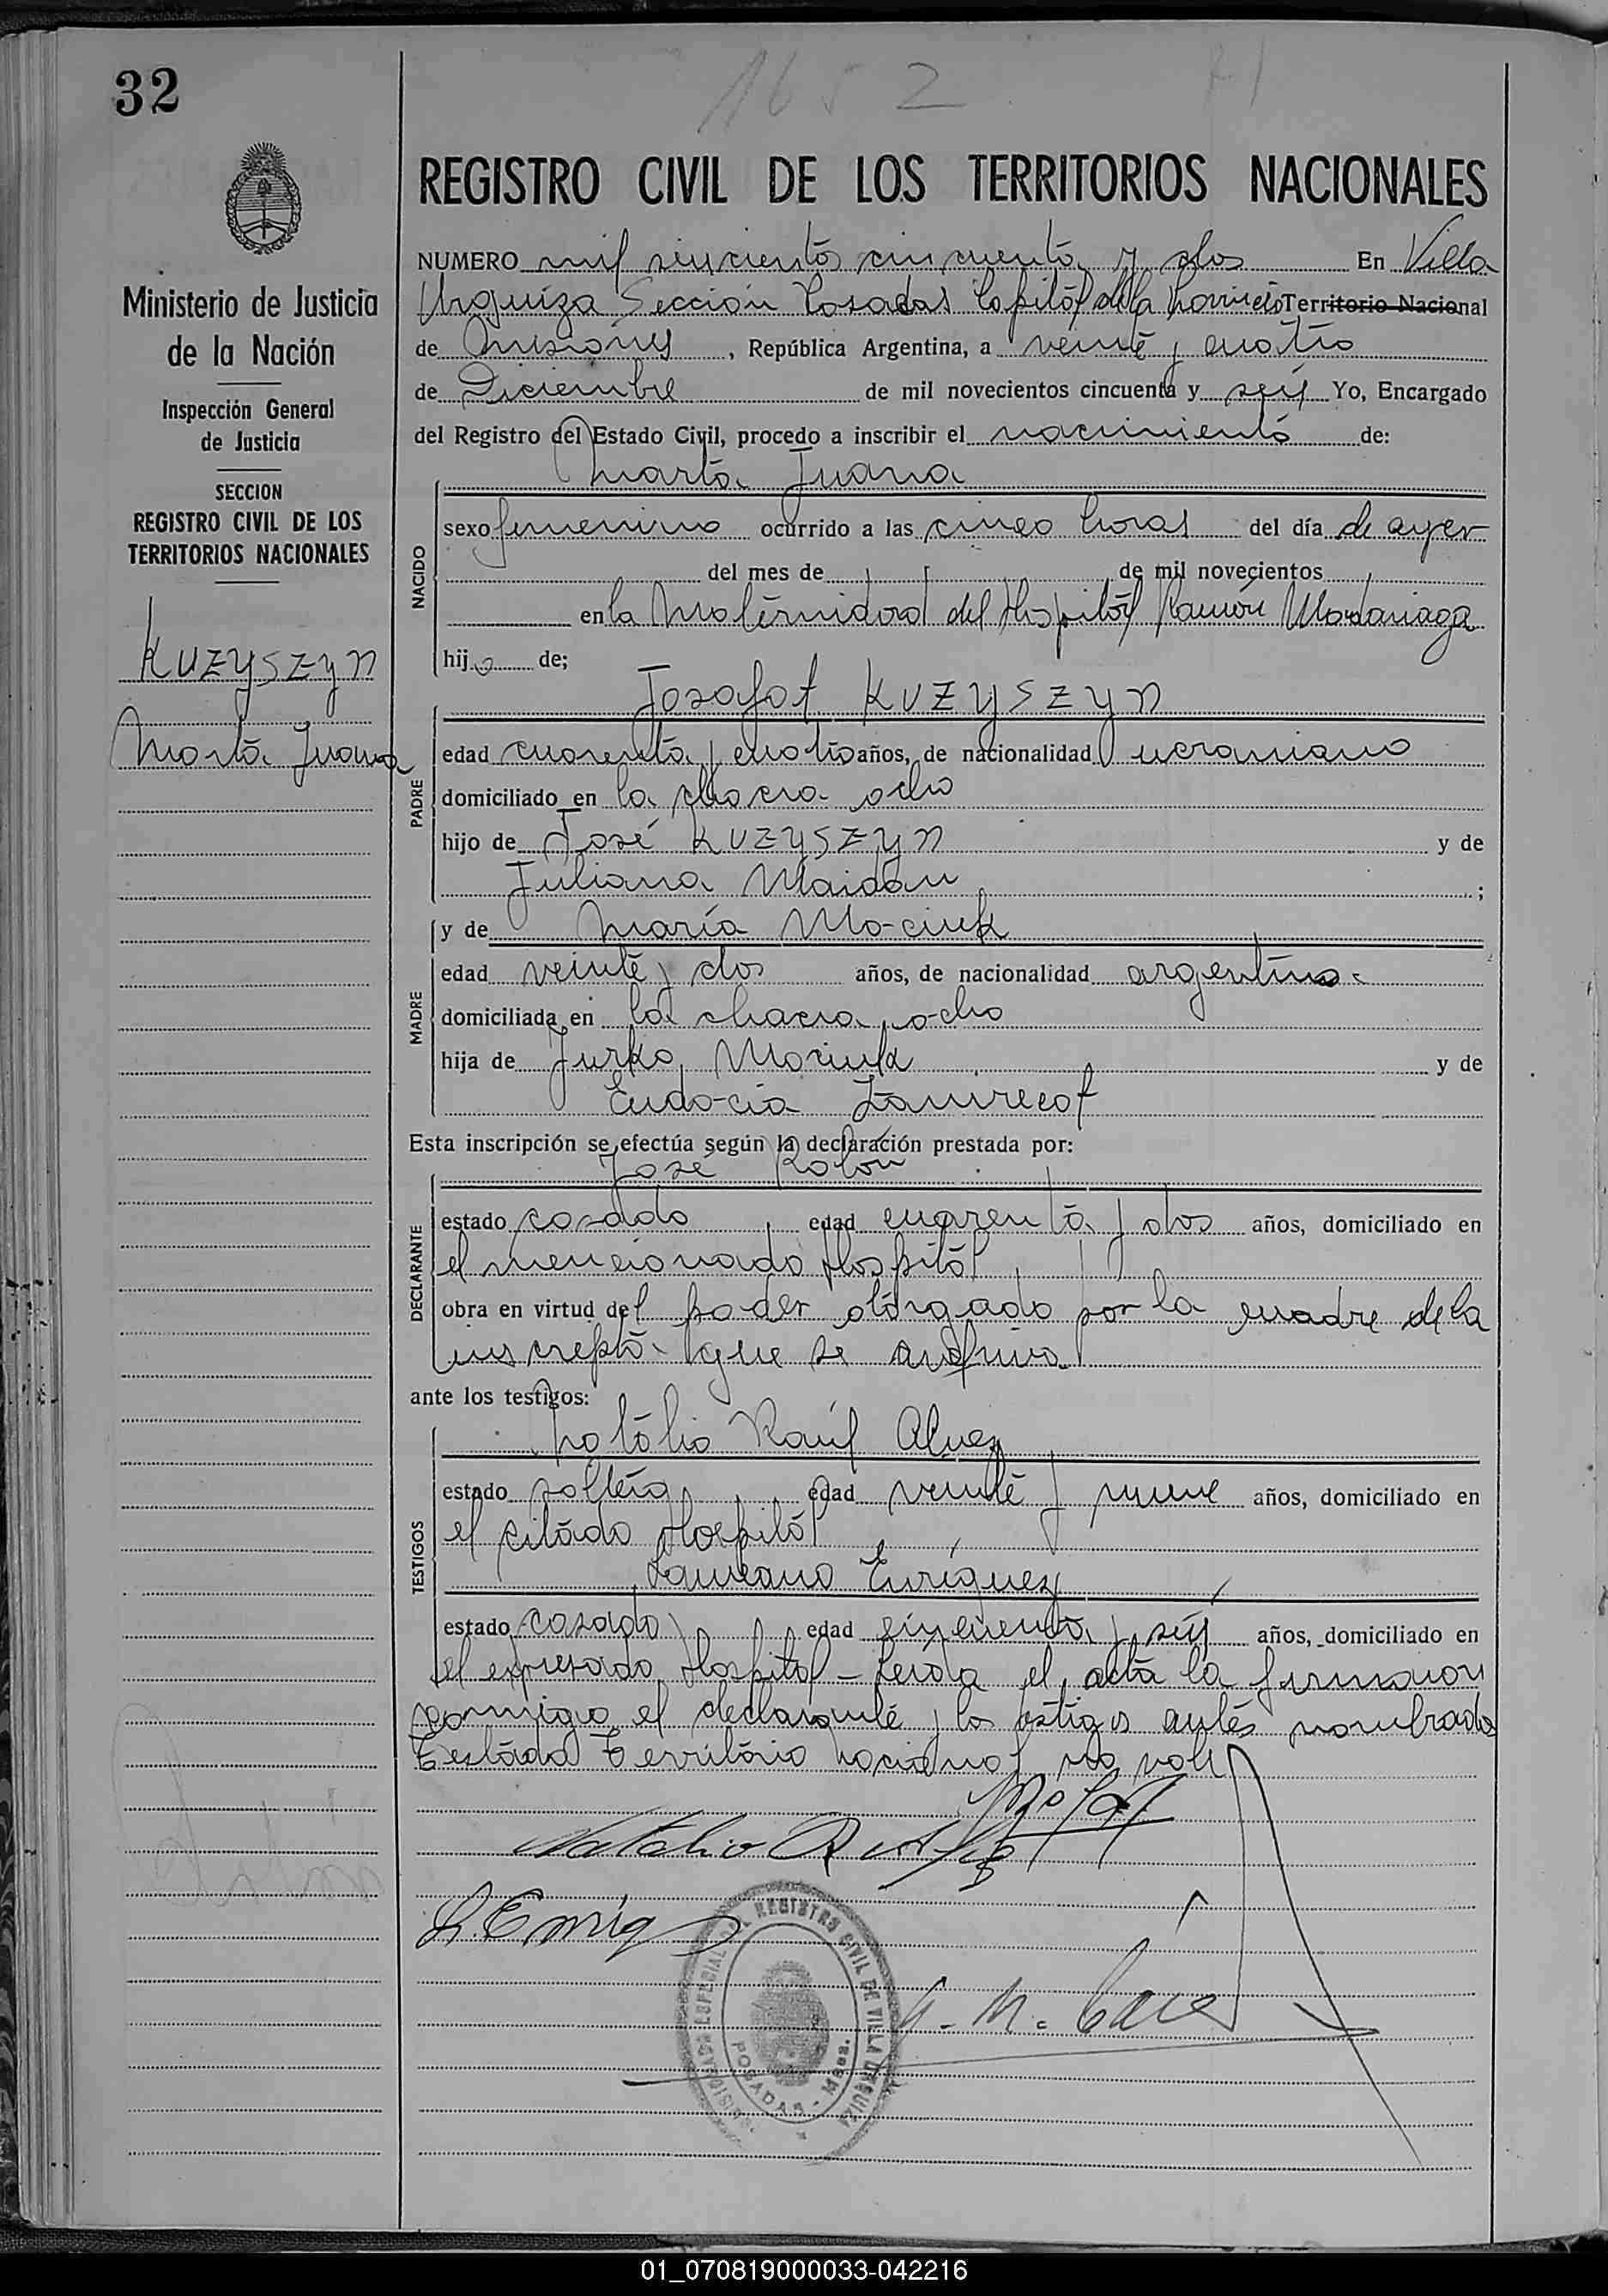 32
1652
REGISTRO CIVIL DE LOS TERRITORIOS NACIONALES
Ministerio de Justicia
de la Nación
Inspección General
de Justicia
SECCION
REGISTRO CIVIL DE LOS
TERRITORIOS NACIONALES
Kuzyszyn
Marta Juana
NUMERO mil seiscientos cincuenta y dos En Villa
Urquiza Sección Posadas Capital de la Provincia Territorio Nacional
de Misiones, República Argentina, a veinte y cuatro
de Diciembre de mil novecientos cincuenta y seis Yo, Encargado
del Registro del Estado Civil, procedo a inscribir el nacimiento de:
Marta Juana
NACIDO
sexo femenino ocurrido a las cinco horas del día de ayer
del mes de de mil novecientos
en la Maternidad del Hospital Ramón Madariaga
hija de;
Josafat Kuzyszyn
PADRE
edad cuarenta y cuatro años, de nacionalidad ucraniano
domiciliado en la chacra ocho
hijo de José Kuzyszyn y de
Juliana Maidan;
y de María Mociuk
MADRE
edad veinte y dos años, de nacionalidad argentina
domiciliada en la chacra ocho
hija de Jurko Mociuk y de
Eudocia
Esta inscripción se efectúa según la declaración prestada por:
José Rolón
DECLARANTE
estado casado edad cuarenta y dos años, domiciliado en
el mencionado Hospital
obra en virtud del poder otorgado por la madre de la
inscripta que se archiva
ante los testigos:
Natalio Raúl Alvez
TESTIGOS
estado soltero edad veinte y nueve años, domiciliado en
el citado Hospital
Laureano Enriquez
estado casado edad cincuenta y seis años, domiciliado en
el expresado Hospital - Leida el acta la firmaron
conmigo el declarante y los testigos antes nombrados
Testado Territorio Nacional no vale
Natalio R
L. Enriq
REGISTRO CIVIL DE VILLA URQUIZA
POSADAS - Mnes.
01_070819000033-042216